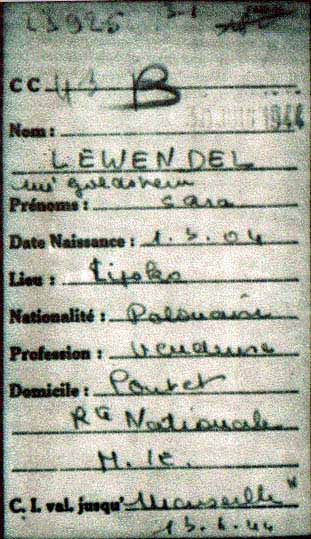 23925 3-1
CC 43 B
30 JUIN 1944
Nom :
LEWENDEL
née goldstein
Prénoms : Sara
Date Naissance : 1.3.04
Lieu :
Nationalité : Polonaise
Profession : Vendeuse
Domicile : Pontet
Rte Nationale
M. le
C. I. val. jusqu' Marseille
13.6.44